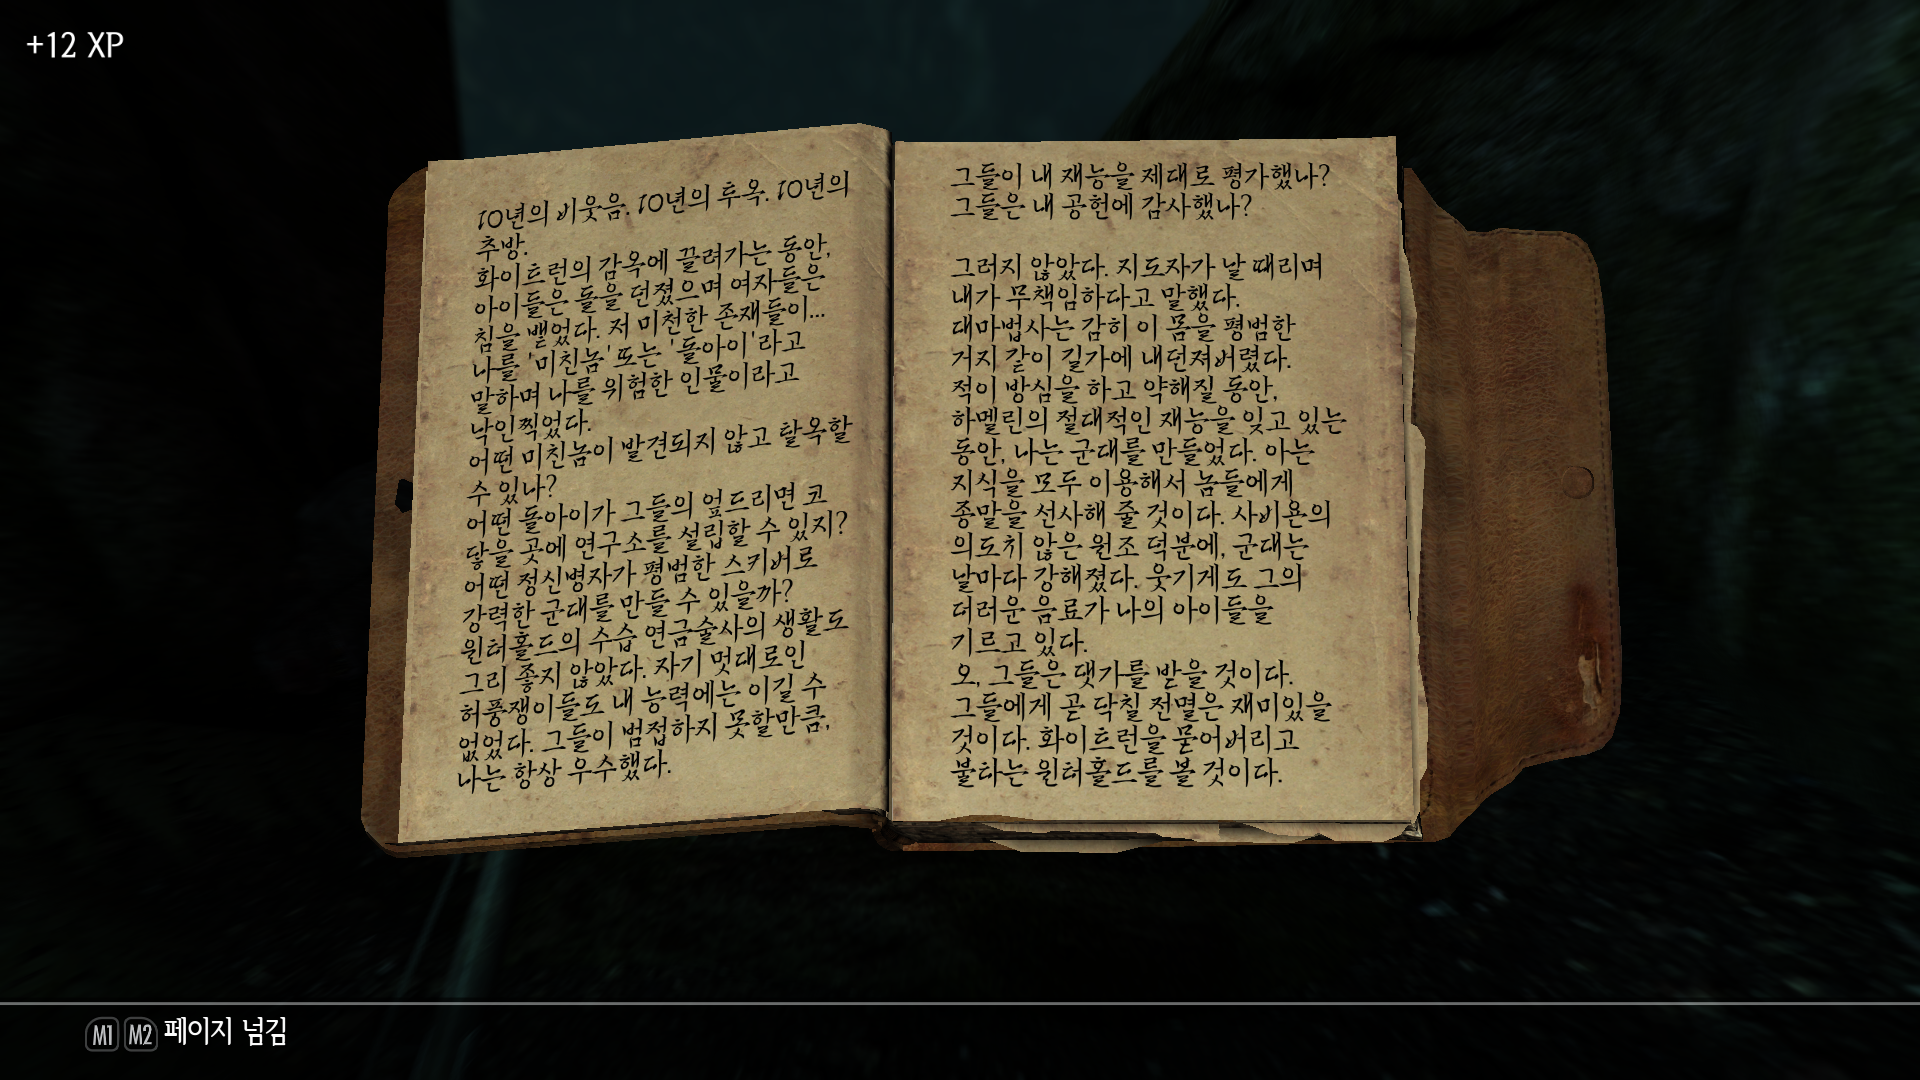 +12 XP
10년의 비웃음. 10년의 투옥. 10년의
추방.
화이트런의 감옥에 끌려가는 동안,
아이들은 돌을 던졌으며 여자들은
침을 뱉었다. 저 미천한 존재들이...
나를 '미친놈' 또는 '돌아이'라고
말하며 나를 위험한 인물이라고
낙인찍었다.
어떤 미친놈이 발견되지 않고 탈옥할
수 있나?
어떤 돌아이가 그들의 엎드리면 코
닿을 곳에 연구소를 설립할 수 있지?
어떤 정신병자가 평범한 스키버로
강력한 군대를 만들 수 있을까?
윈터홀드의 수습 연금술사의 생활도
그리 좋지 않았다. 자기 멋대로인
허풍쟁이들도 내 능력에는 이길 수
없었다. 그들이 범접하지 못할만큼,
나는 항상 우수했다.
그들이 내 재능을 제대로 평가했나?
그들은 내 공헌에 감사했나?
그러지 않았다. 지도자가 날 때리며
내가 무책임하다고 말했다.
대마법사는 감히 이 몸을 평범한
거지 같이 길가에 내던져버렸다.
적이 방심을 하고 약해질 동안,
하멜린의 절대적인 재능을 잊고 있는
동안, 나는 군대를 만들었다. 아는
지식을 모두 이용해서 놈들에게
종말을 선사해 줄 것이다. 사비욘의
의도치 않은 원조 덕분에, 군대는
날마다 강해졌다. 웃기게도 그의
더러운 음료가 나의 아이들을
기르고 있다.
오, 그들은 댓가를 받을 것이다.
그들에게 곧 닥칠 전멸은 재미있을
것이다. 화이트런을 묻어버리고
불타는 윈터홀드를 볼 것이다.
M1 M2 페이지 넘김